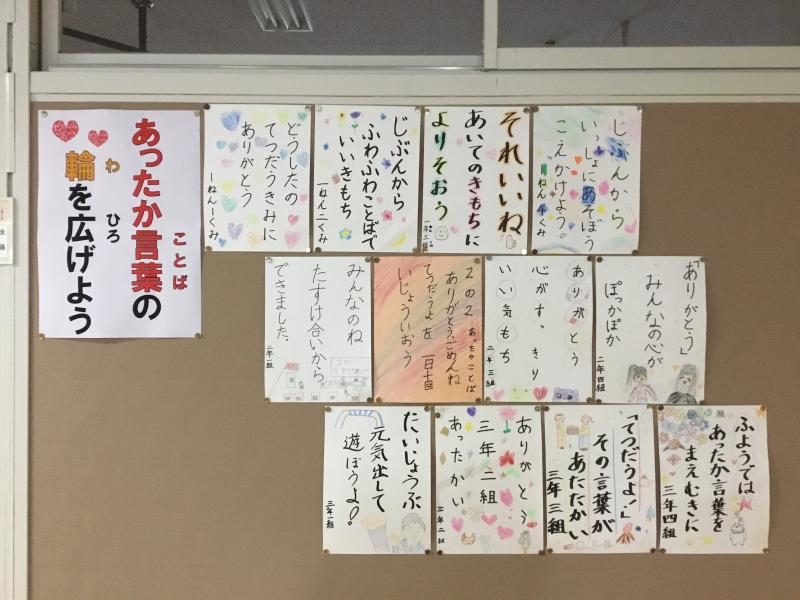 あったか言葉の
ことば
輪を広げよう
わ
ひろ
どうしたの
てつだうきみに
ありがとう
一ねん一くみ
じぶんから
ふわふわことばで
いいきもち
一ねん二くみ
それいいね
あいてのきもちに
よりそおう
じぶんから
いっしょにあそぼう
こえかけよう。
1ねん4くみ
みんなのね
たすけ合いから
できました。
二年一組
2の2 あったかことば
ありがとう、ごめんね
てつだうよを 一日十回
いじょういおう
ありがとう
心がすっきり
いい気もち
二年三組
「ありがとう」
みんなの心が
ぽっかぽか
二年四組
だいじょうぶ
元気出して
遊ぼうよ!
三年一組
ありがとう
三年二組
あったかい
三年二組
「てつだうよ!」
その言葉が
あたたかい
三年三組
ふようでは
あったか言葉を
まえむきに
三年四組